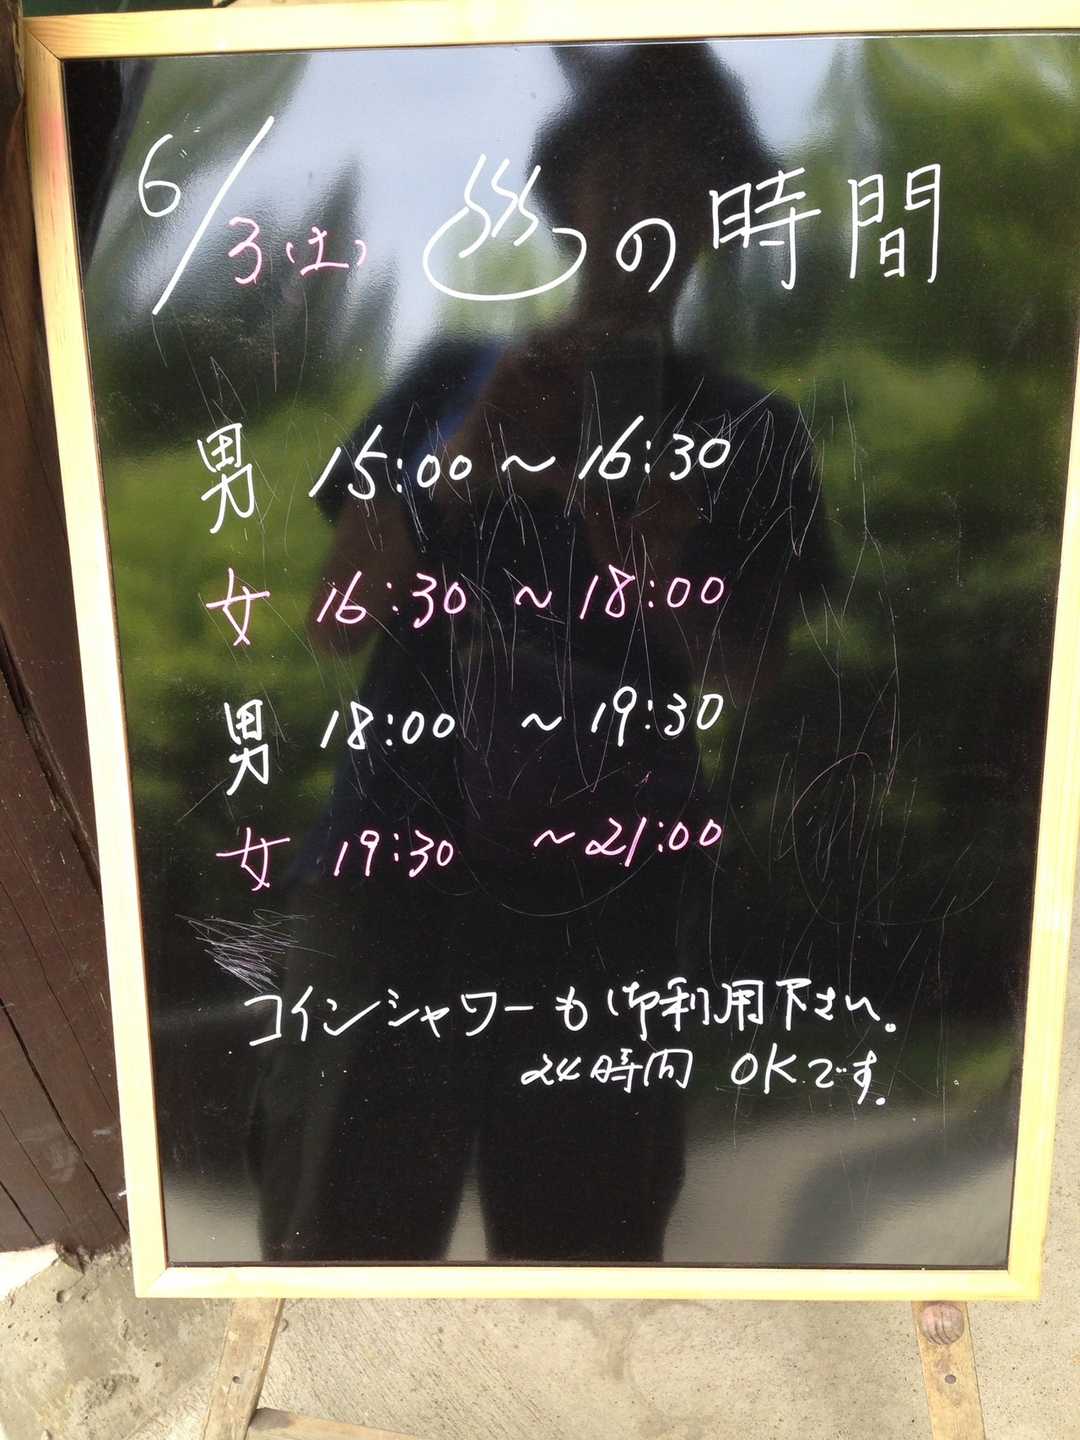 6/3(土) ♨の時間
男 15:00～16:30
女 16:30～18:00
男 18:00～19:30
女 19:30～21:00
コインシャワーも御利用下さい。
24時間 OKです.